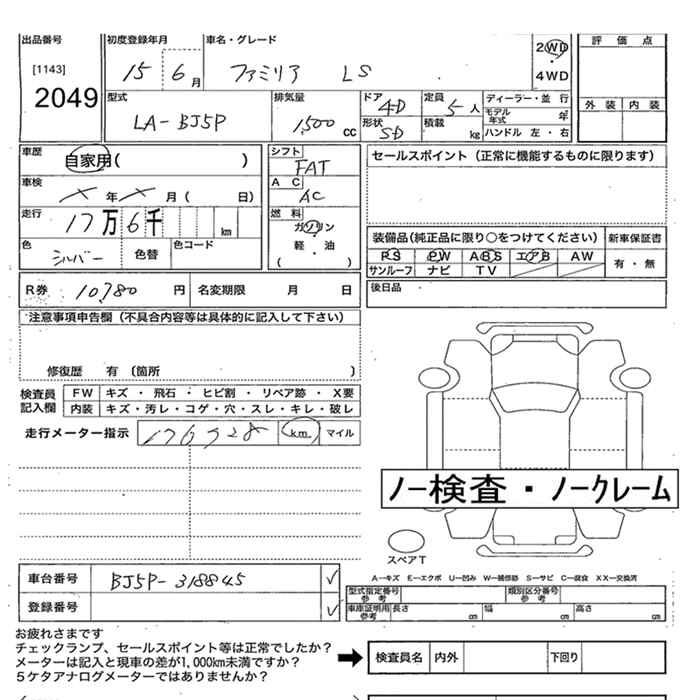 出品番号 初度登録年月 車名・グレード 評価点
[1143] 15 6月 ファミリア LS 2WD
2049 4WD
型式 排気量 ドア 4D 定員 5人 ディーラー・並行 外装 内装
LA-BJ5P 1,500cc 形状 SD 積載 kg モデル年式 年
ハンドル 左・右
車歴 自家用( ) シフト FAT セールスポイント(正常に機能するものに限ります)
車検 年 月( 日) AC AC
走行 17万6千 km 燃料 ガソリン
色 シルバー 色替 色コード 軽・油
( )
装備品(純正品に限り○をつけてください) 新車保証書
PS PW ABS エアB AW 有・無
サンルーフ ナビ TV
R券 10,780円 名変期限 月 日 後日品
注意事項申告欄(不具合内容等は具体的に記入して下さい)
修復歴 有(箇所 )
検査員記入欄 FW キズ・飛石・ヒビ割・リペア跡・X要
内装 キズ・汚レ・コゲ・穴・スレ・キレ・破レ
走行メーター指示 km マイル
ノー検査・ノークレーム
スペアT
A-キズ E-エクボ U-凹み W-補修跡 S-サビ C-腐食 XX-交換済
車台番号 BJ5P-318845 ✓ 型式指定番号参考 類別区分番号参考
登録番号 ✓ 車庫証明用参考 長さ cm 幅 cm 高さ cm
お疲れさまです
チェックランプ、セールスポイント等は正常でしたか?
メーターは記入と現車の差が1,000km未満ですか?
5ケタアナログメーターではありませんか?
検査員名 内外 下回り